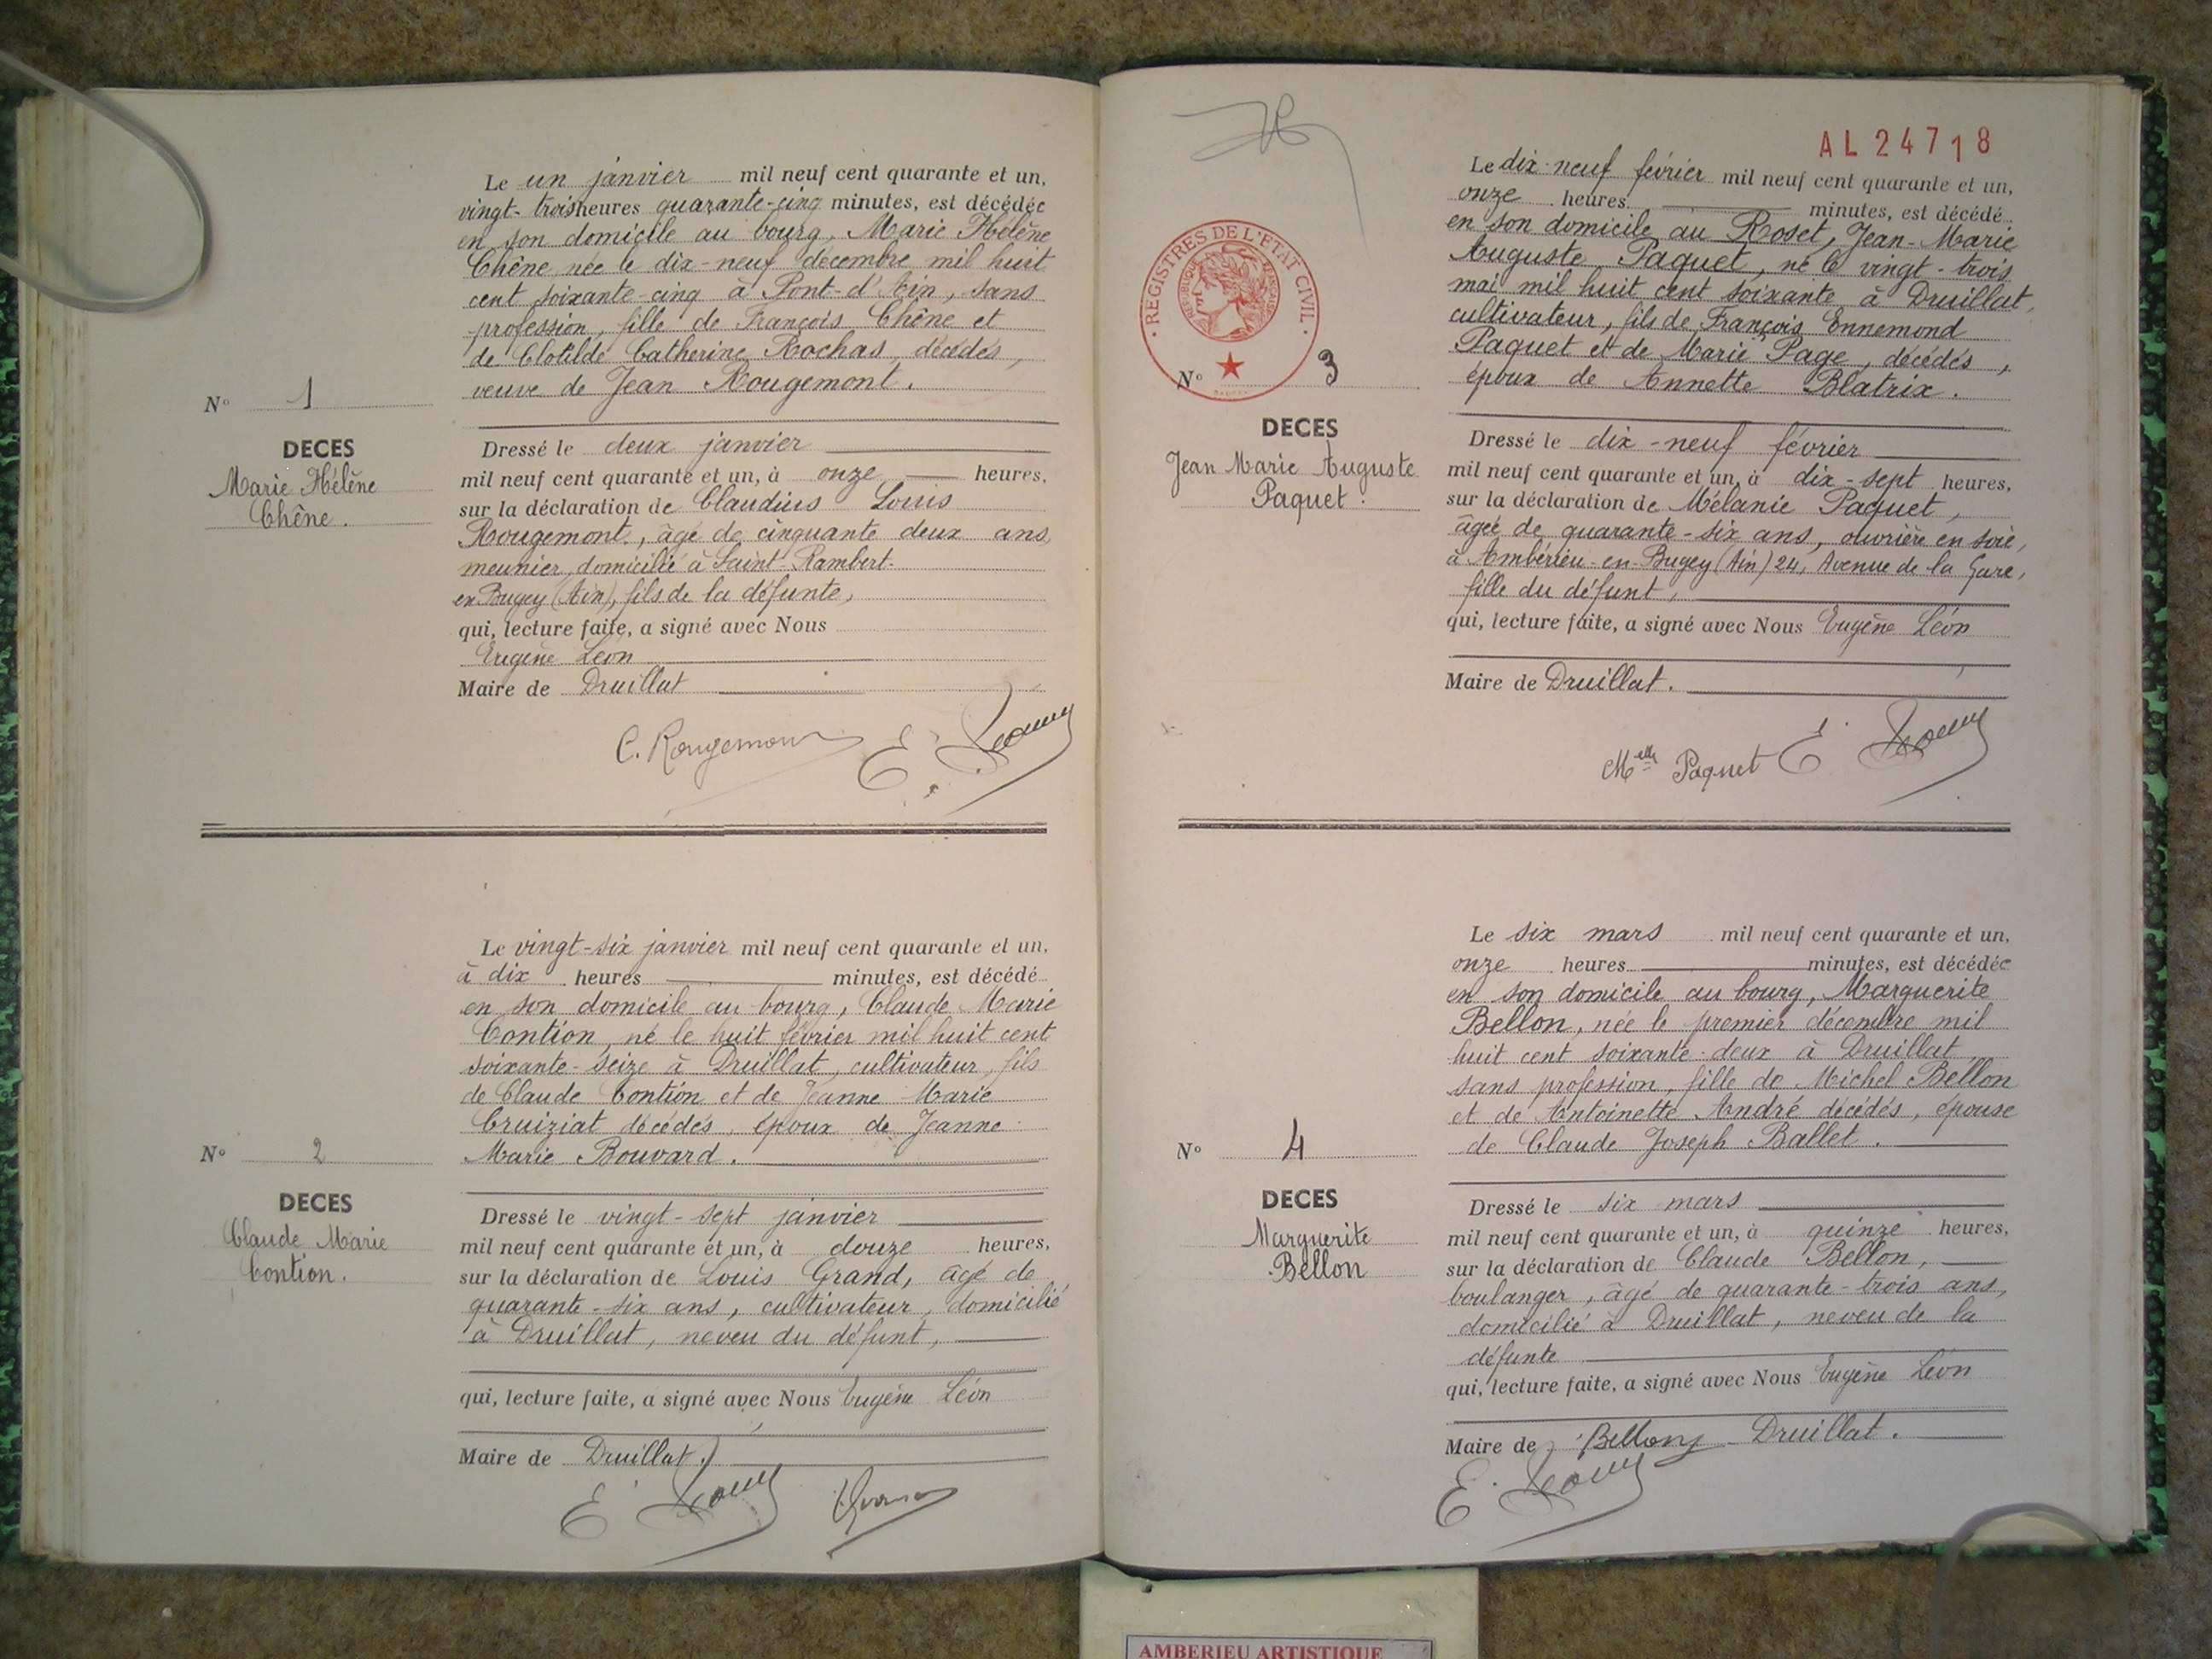 Le un janvier mil neuf cent quarante et un,
vingt-trois heures quarante-cinq minutes, est décédée
en son domicile au bourg, Marie Hélène
Chêne née le dix-neuf décembre mil huit
cent soixante-cinq à Pont-d'Ain, sans
profession, fille de François Chêne et
de Clotilde Catherine Rochas, décédés,
veuve de Jean Rougemont.
N° 1
DECES
Marie Hélène
Chêne.
Dressé le deux janvier
mil neuf cent quarante et un, à onze heures,
sur la déclaration de Claudius Louis
Rougemont, âgé de cinquante deux ans,
meunier, domicilié à Saint-Rambert-
en Bugey (Ain), fils de la défunte,
qui, lecture faite, a signé avec Nous
Eugène Léon
Maire de Druillat
C. Rougemont E.
Le vingt-six janvier mil neuf cent quarante et un,
à dix heures minutes, est décédé
en son domicile au bourg, Claude Marie
Contion, né le huit février mil huit cent
soixante-seize à Druillat, cultivateur, fils
de Claude Contion et de Jeanne Marie
Cruiziat décédés, époux de Jeanne
Marie Bouvard.
N° 2
DECES
Claude Marie
Contion.
Dressé le vingt-sept janvier
mil neuf cent quarante et un, à douze heures,
sur la déclaration de Louis Grand, âgé de
quarante-six ans, cultivateur, domicilié
à Druillat, neveu du défunt,
qui, lecture faite, a signé avec Nous Eugène Léon
Maire de Druillat.
E.
AL24718
REGISTRES DE L'ETAT CIVIL
Le dix-neuf février mil neuf cent quarante et un,
onze heures minutes, est décédé
en son domicile au Roset, Jean-Marie
Auguste Paquet, né le vingt-trois
mai mil huit cent soixante à Druillat,
cultivateur, fils de François Ennemond
Paquet et de Marie Page, décédés,
époux de Annette Blatrix.
N° 3
DECES
Jean Marie Auguste
Paquet.
Dressé le dix-neuf février
mil neuf cent quarante et un, à dix-sept heures,
sur la déclaration de Mélanie Paquet,
âgée de quarante-six ans, ouvrière en soie,
à Ambérieu-en-Bugey (Ain) 24, Avenue de la Gare,
fille du défunt,
qui, lecture faite, a signé avec Nous Eugène Léon
Maire de Druillat.
Melle Paquet E
Le six mars mil neuf cent quarante et un,
onze heures minutes, est décédée
en son domicile au bourg, Marguerite
Bellon, née le premier décembre mil
huit cent soixante-deux à Druillat,
sans profession, fille de Michel Bellon
et de Antoinette André décédés, épouse
de Claude Joseph Ballet.
N° 4
DECES
Marguerite
Bellon
Dressé le six mars
mil neuf cent quarante et un, à quinze heures,
sur la déclaration de Claude Bellon,
boulanger, âgé de quarante-trois ans,
domicilié à Druillat, neveu de la
défunte
qui, lecture faite, a signé avec Nous Eugène Léon
Maire de Bellon Druillat.
E.
AMBERIEU ARTISTIQUE